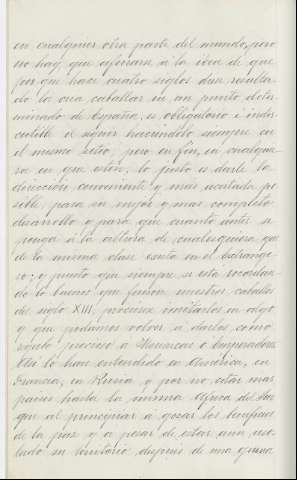 en cualquier otra parte del mundo, pero
no hay que aferrarse a la idea de que
por que hace cuatro siglos dió resulta-
do la cria caballar en un punto deter-
minado de España, es obligatorio e indis-
cutible el seguir haciendolo siempre en
el mismo sitio; pero en fin, en cualquie-
ra en que esten, lo justo es darle la
dirección conveniente y mas acertada po-
sible, para su mejor y mas completo
desarrollo y para que cuanto antes se
ponga a la altura de cualesquiera que
de la misma clase exista en el Extrange-
ro; y puesto que siempre se esta recordan-
do lo bueno que fueron nuestros caballos
del siglo XIII, procurese imitarlos en algo
y que podamos volver a darlos como
regalo precioso a Monarcas o Emperadores.
Asi lo han entendido en America, en
Francia, en Rusia y por no citar mas
paises hasta la misma Africa del Sur
que al principiar a gozar los beneficios
de la paz y a pesar de estar aun aso-
lado su territorio despues de una guerra